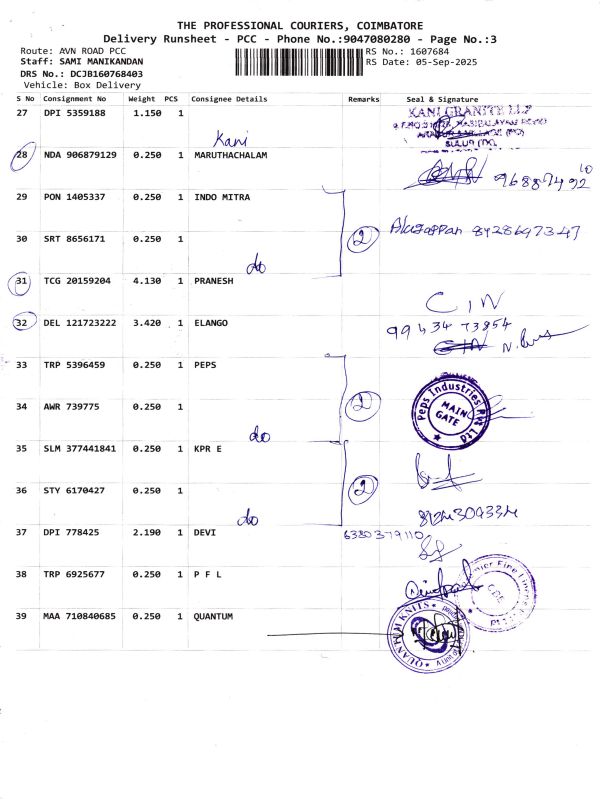 THE PROFESSIONAL COURIERS, COIMBATORE
Delivery Runsheet - PCC - Phone No.:9047080280 - Page No.:3
Route: AVN ROAD PCC
RS No.: 1607684
Staff: SAMI MANIKANDAN
RS Date: 05-Sep-2025
DRS No.: DCJB160768403
Vehicle: Box Delivery
S No Consignment No Weight PCS Consignee Details Remarks Seal & Signature
27 DPI 5359188 1.150 1
KANI GRANITE LLP
SULUR (TK),
Kani
28 NDA 906879129 0.250 1 MARUTHACHALAM
29 PON 1405337 0.250 1 INDO MITRA
30 SRT 8656171 0.250 1 do 2 8428697347
31 TCG 20159204 4.130 1 PRANESH
CIN
32 DEL 121723222 3.420 1 ELANGO
33 TRP 5396459 0.250 1 PEPS
34 AWR 739775 0.250 1 do 2
Peps Industries Pvt Ltd
MAIN GATE
35 SLM 377441841 0.250 1 KPR E
36 STY 6170427 0.250 1 do 2
37 DPI 778425 2.190 1 DEVI 6380379110
38 TRP 6925677 0.250 1 P F L
39 MAA 710840685 0.250 1 QUANTUM
QUANTUM KNITS